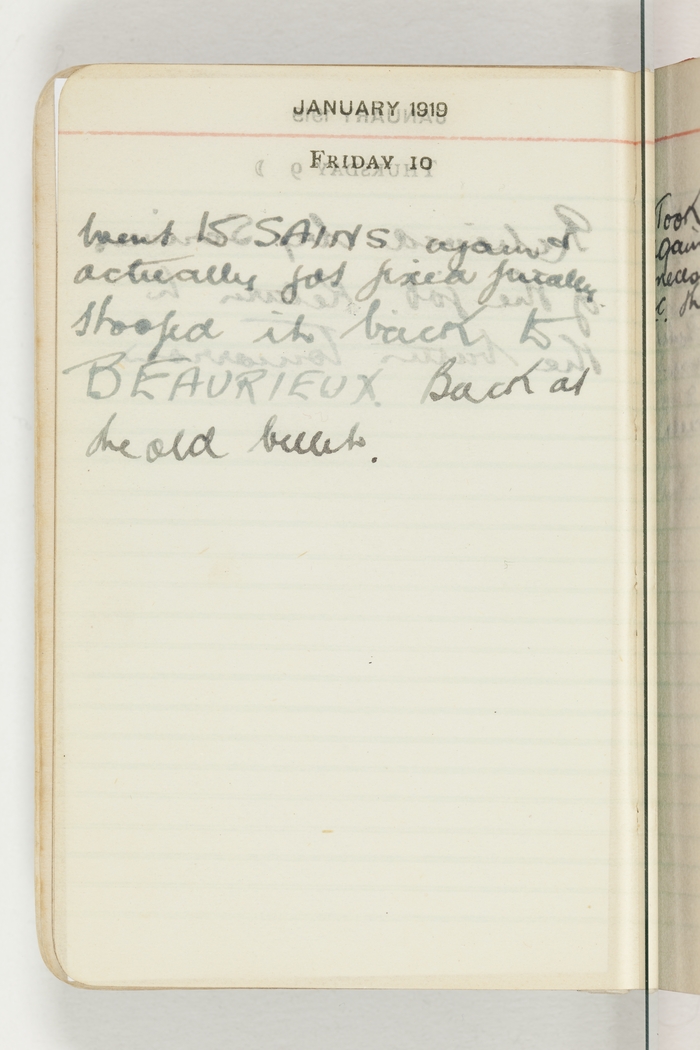 JANUARY 1919
FRIDAY 10
Went to SAINS again &
actually got fixed finally
stooped it back to
BEAURIEUX. Back at
the old billets.
Took